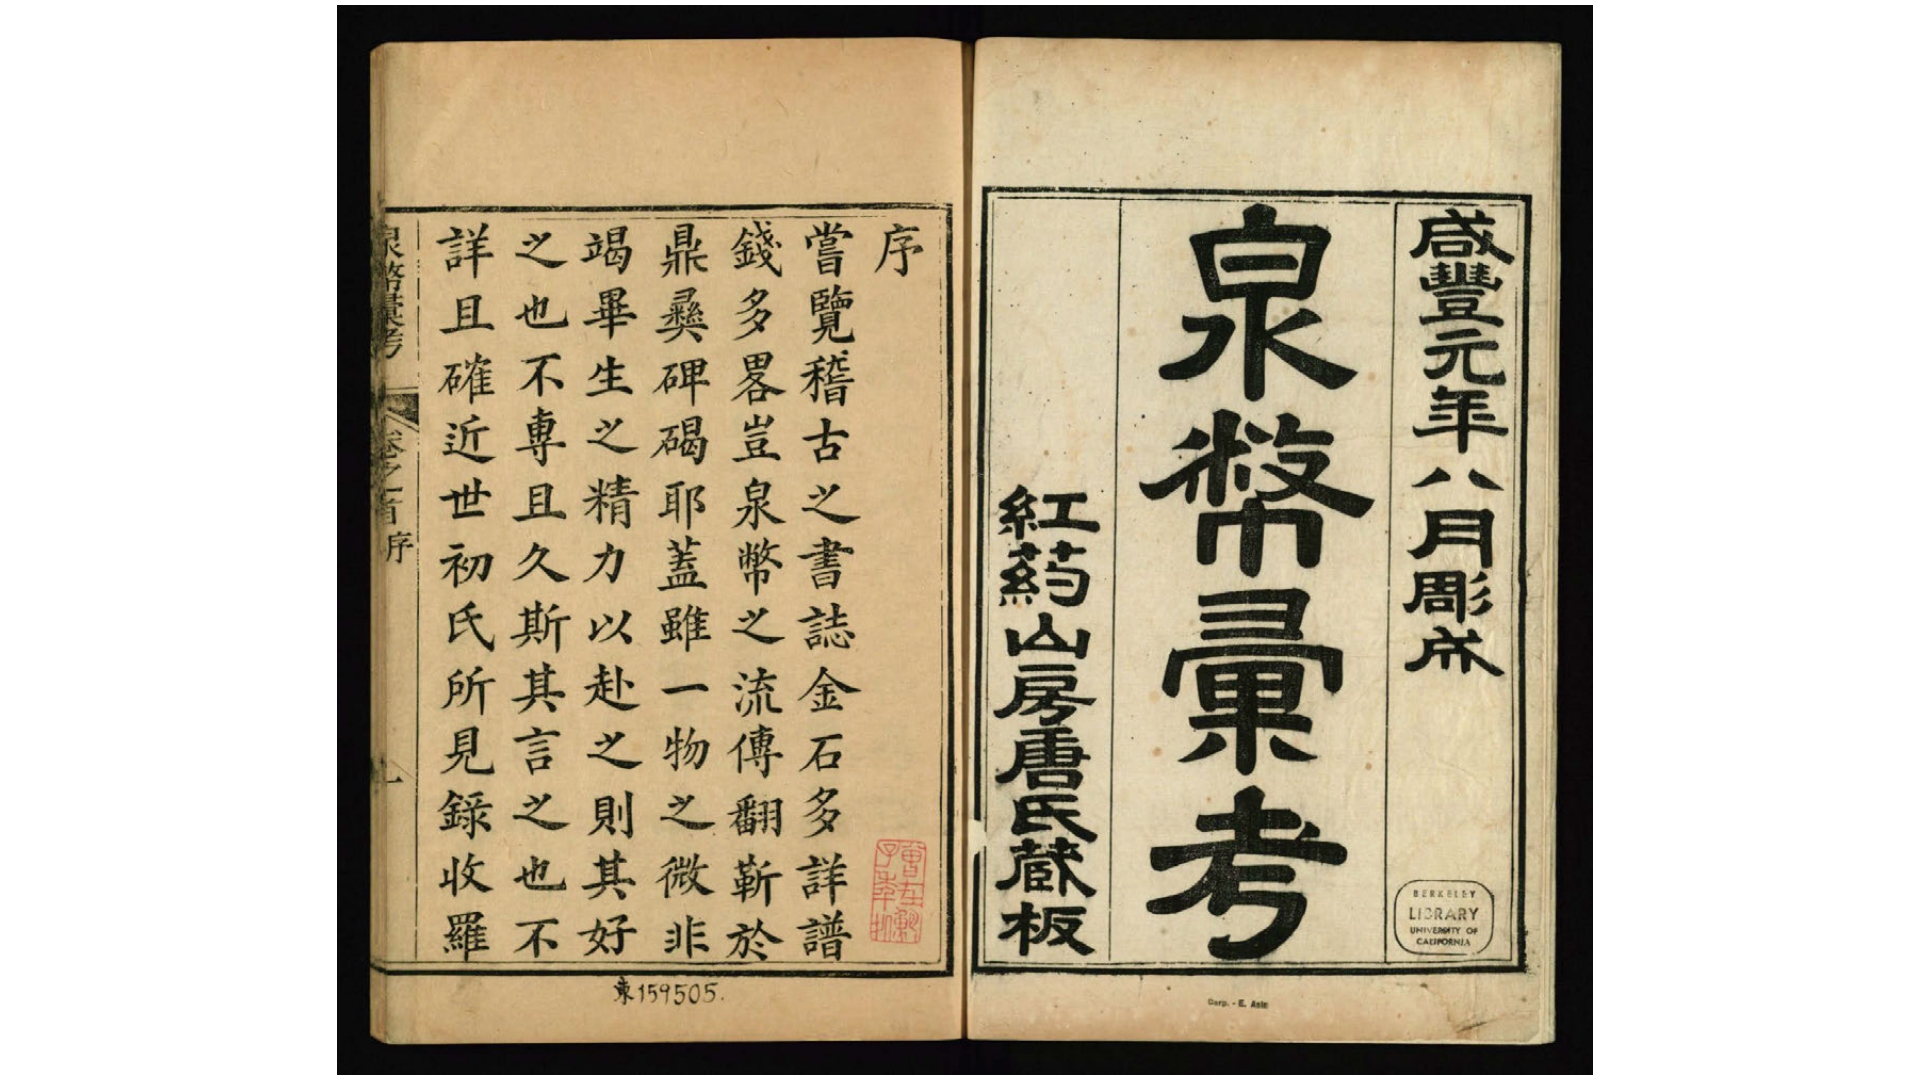 咸豐元年八月彫成
泉幣彙考
紅葯山房唐氏藏板
BERKELEY
LIBRARY
UNIVERSITY OF
CALIFORNIA
序
嘗覽稽古之書誌金石多詳譜
錢多畧豈泉幣之流傳翻靳於
鼎彝碑碣耶蓋雖一物之微非
竭畢生之精力以赴之則其好
之也不專且久斯其言之也不
詳且確近世初氏所見錄收羅
泉幣彙考
卷之首序
一
東159505.